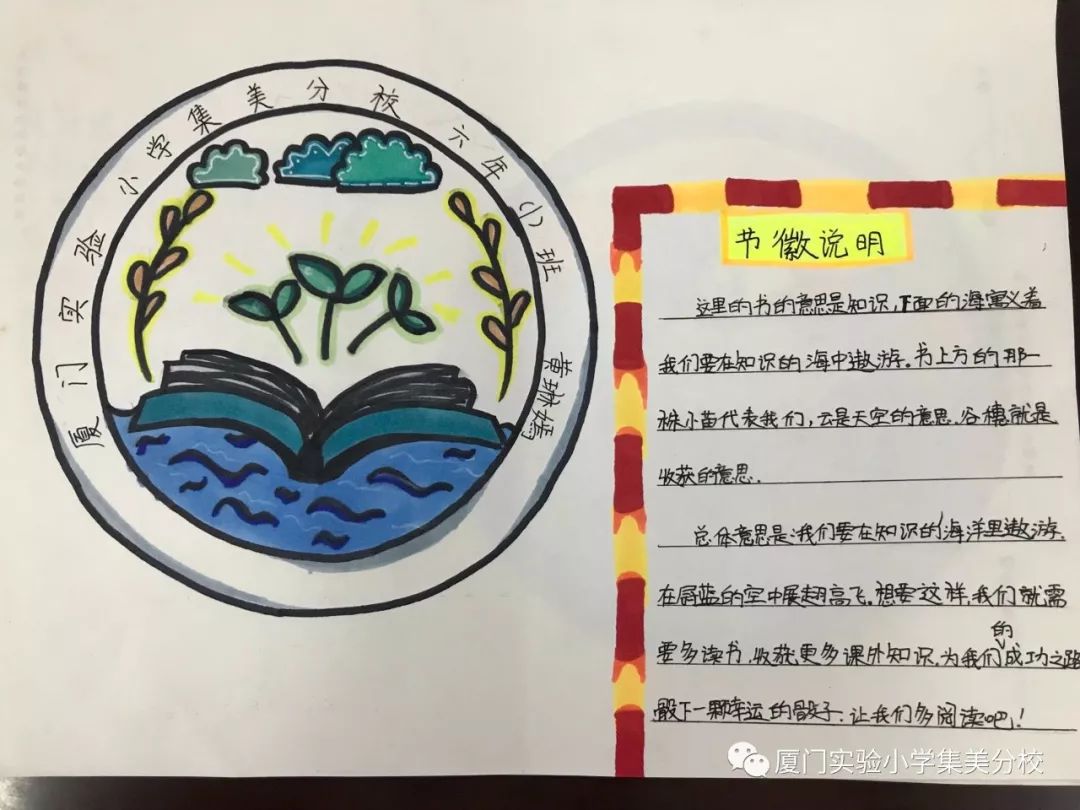 厦门实验小学集美分校 六年(1)班 黄琳嫣
节徽说明
这里的书的意思是知识,下面的海寓义着
我们要在知识的海中遨游。书上方的那一
株小苗代表我们,云是天空的意思,谷穗就是
收获的意思.
总体意思是:我们要在知识的海洋里遨游.
在蔚蓝的空中展翅高飞.想要这样,我们就需
要多读书,收获更多课外知识,为我们的成功之路
骰下一颗幸运的骰子.让我们多阅读吧!
厦门实验小学集美分校